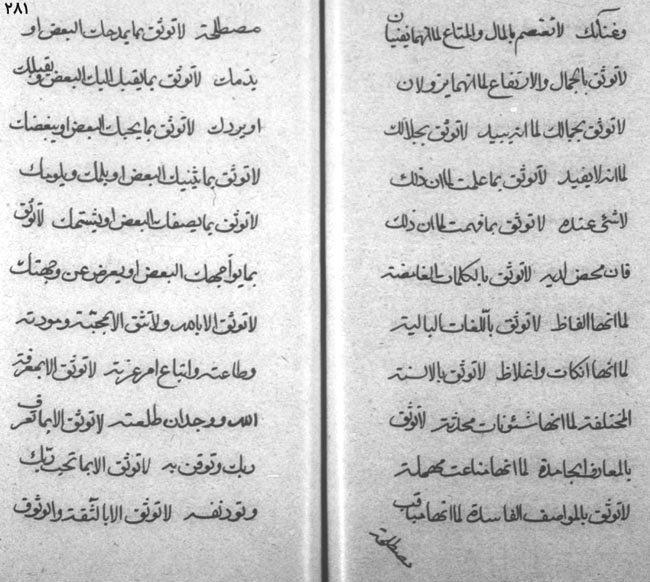 ٢٨١
وغنآئك لاتعتصم بالمال والمتاع لما انهما يفنيان
لاتوثق بالجمال والارتفاع لما انهما يزولان
لاتوثق بجمالك لما انه يبيد لاتوثق بجلالك
لما انه لايفيد لاتوثق بما علمت لما ان ذلك
لاشئ عنده لاتوثق بما فهمت لما ان ذلك
فان محض لديه لاتوثق بالكلمات الغامضة
لما انها الفاظ لاتوثق باللغات البالية
لما انها انكات واغلاظ لاتوثق بالالسنة
المختلفة لما انها شئونات محدثة لاتوثق
بالمعارف الجامدة لما انها مناعت مهملة
لاتوثق بالمواصف الفاسدة لما انها
مصطلحة
مصطلحة لاتوثق بما يمدحك البعض او
يذمك لاتوثق بما يقبل اليك البعض ويقبلك
او يردك لاتوثق بما يحبك البعض او يبغضك
لاتوثق بما يثنيك البعض او يلمك ويلومك
لاتوثق بما يصفك البعض او يشتمك لاتوثق
بما يواجهك البعض او يعرض عن وجهتك
لاتوثق الا بالله ولاتثق الا بمحبته ومودته
وطاعته واتباع امر عزته لاتوثق الا بمعرفة
الله ووجدان طلعته لاتوثق الا بما تعرف
ربك وتوقن به لاتوثق الا بما تحب ربك
وتود نفسه لاتوثق الا بالثقة والوثوق